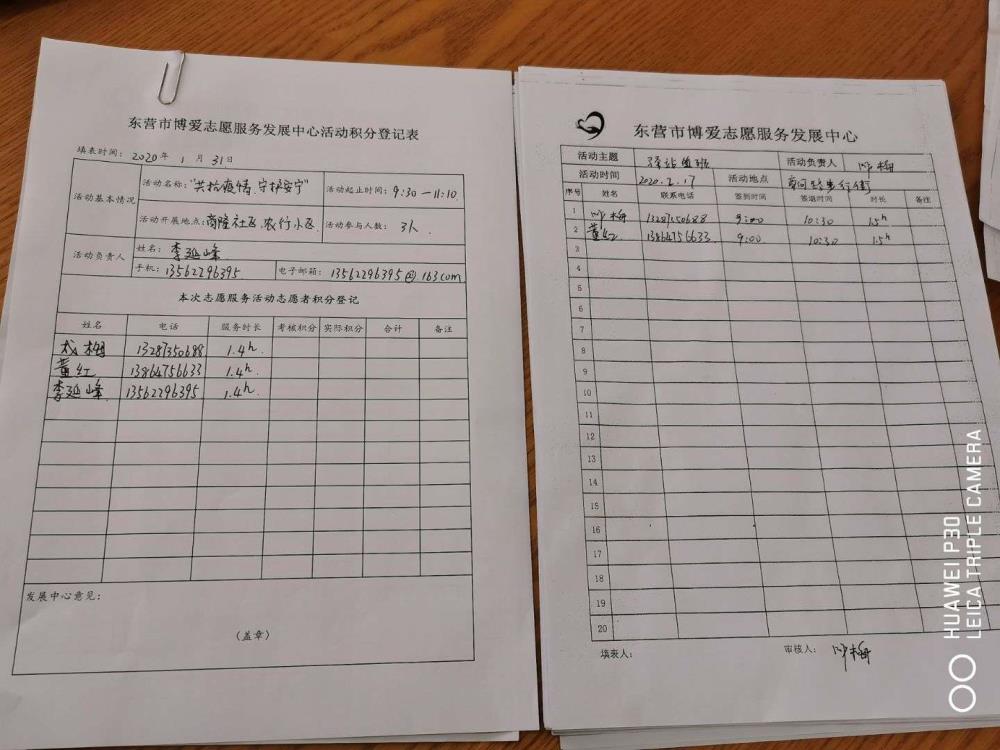 东营市博爱志愿服务发展中心活动积分登记表
填表时间：2020年 1 月 31日
活动基本情况
活动名称："共抗疫情、守护安宁"
活动起止时间：9:30 — 11:10
活动开展地点：商隆社区、农行小区
活动参与人数： 3人
活动负责人
姓名：李延峰
手机：13562296395
电子邮箱：13562296395@163com
本次志愿服务活动志愿者积分登记
姓名 电话 服务时长 考核积分 实际积分 合计 备注
梅 13287350688 1.4h.
董红 13864756633 1.4h.
李延峰 13562296395 1.4h.
发展中心意见：
（盖章）
东营市博爱志愿服务发展中心
活动主题 驿站值班 活动负责人 梅
活动时间 2020.2.17 活动地点 步行街
序号 姓名 联系电话 签到时间 签退时间 时长 备注
1 梅 13287350688 9:00 10:30 1.5h
2 董红 13864756633 9:00 10:30 1.5h
3
4
5
6
7
8
9
10
11
12
13
14
15
16
17
18
19
20
填表人：
审核人： 梅
HUAWEI P30
LEICA TRIPLE CAMERA